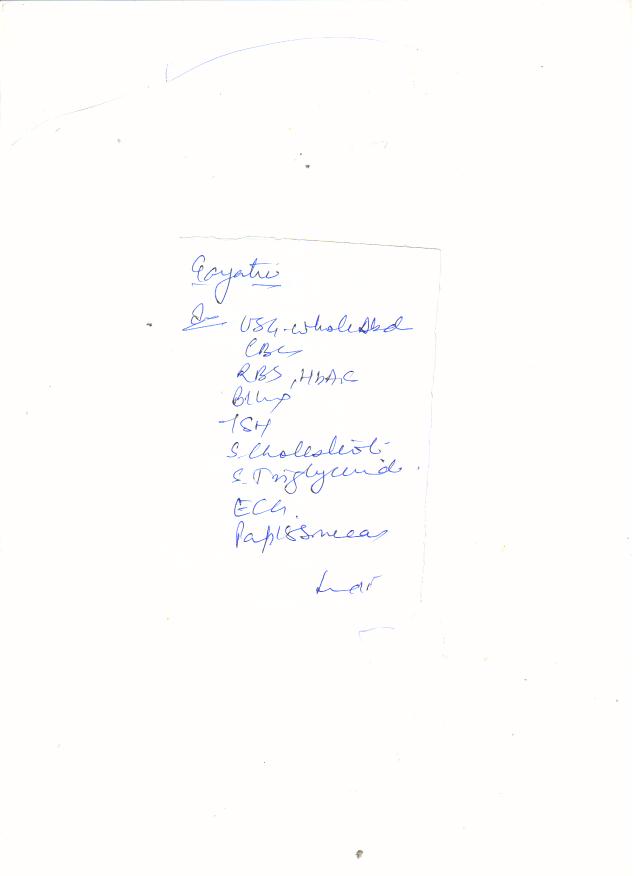 Gayatri
USG-Whole Abd
CBC
RBS, HbA1C
TSH
S. Cholesterol
S. Triglyceride.
ECG.
Pap's Smear